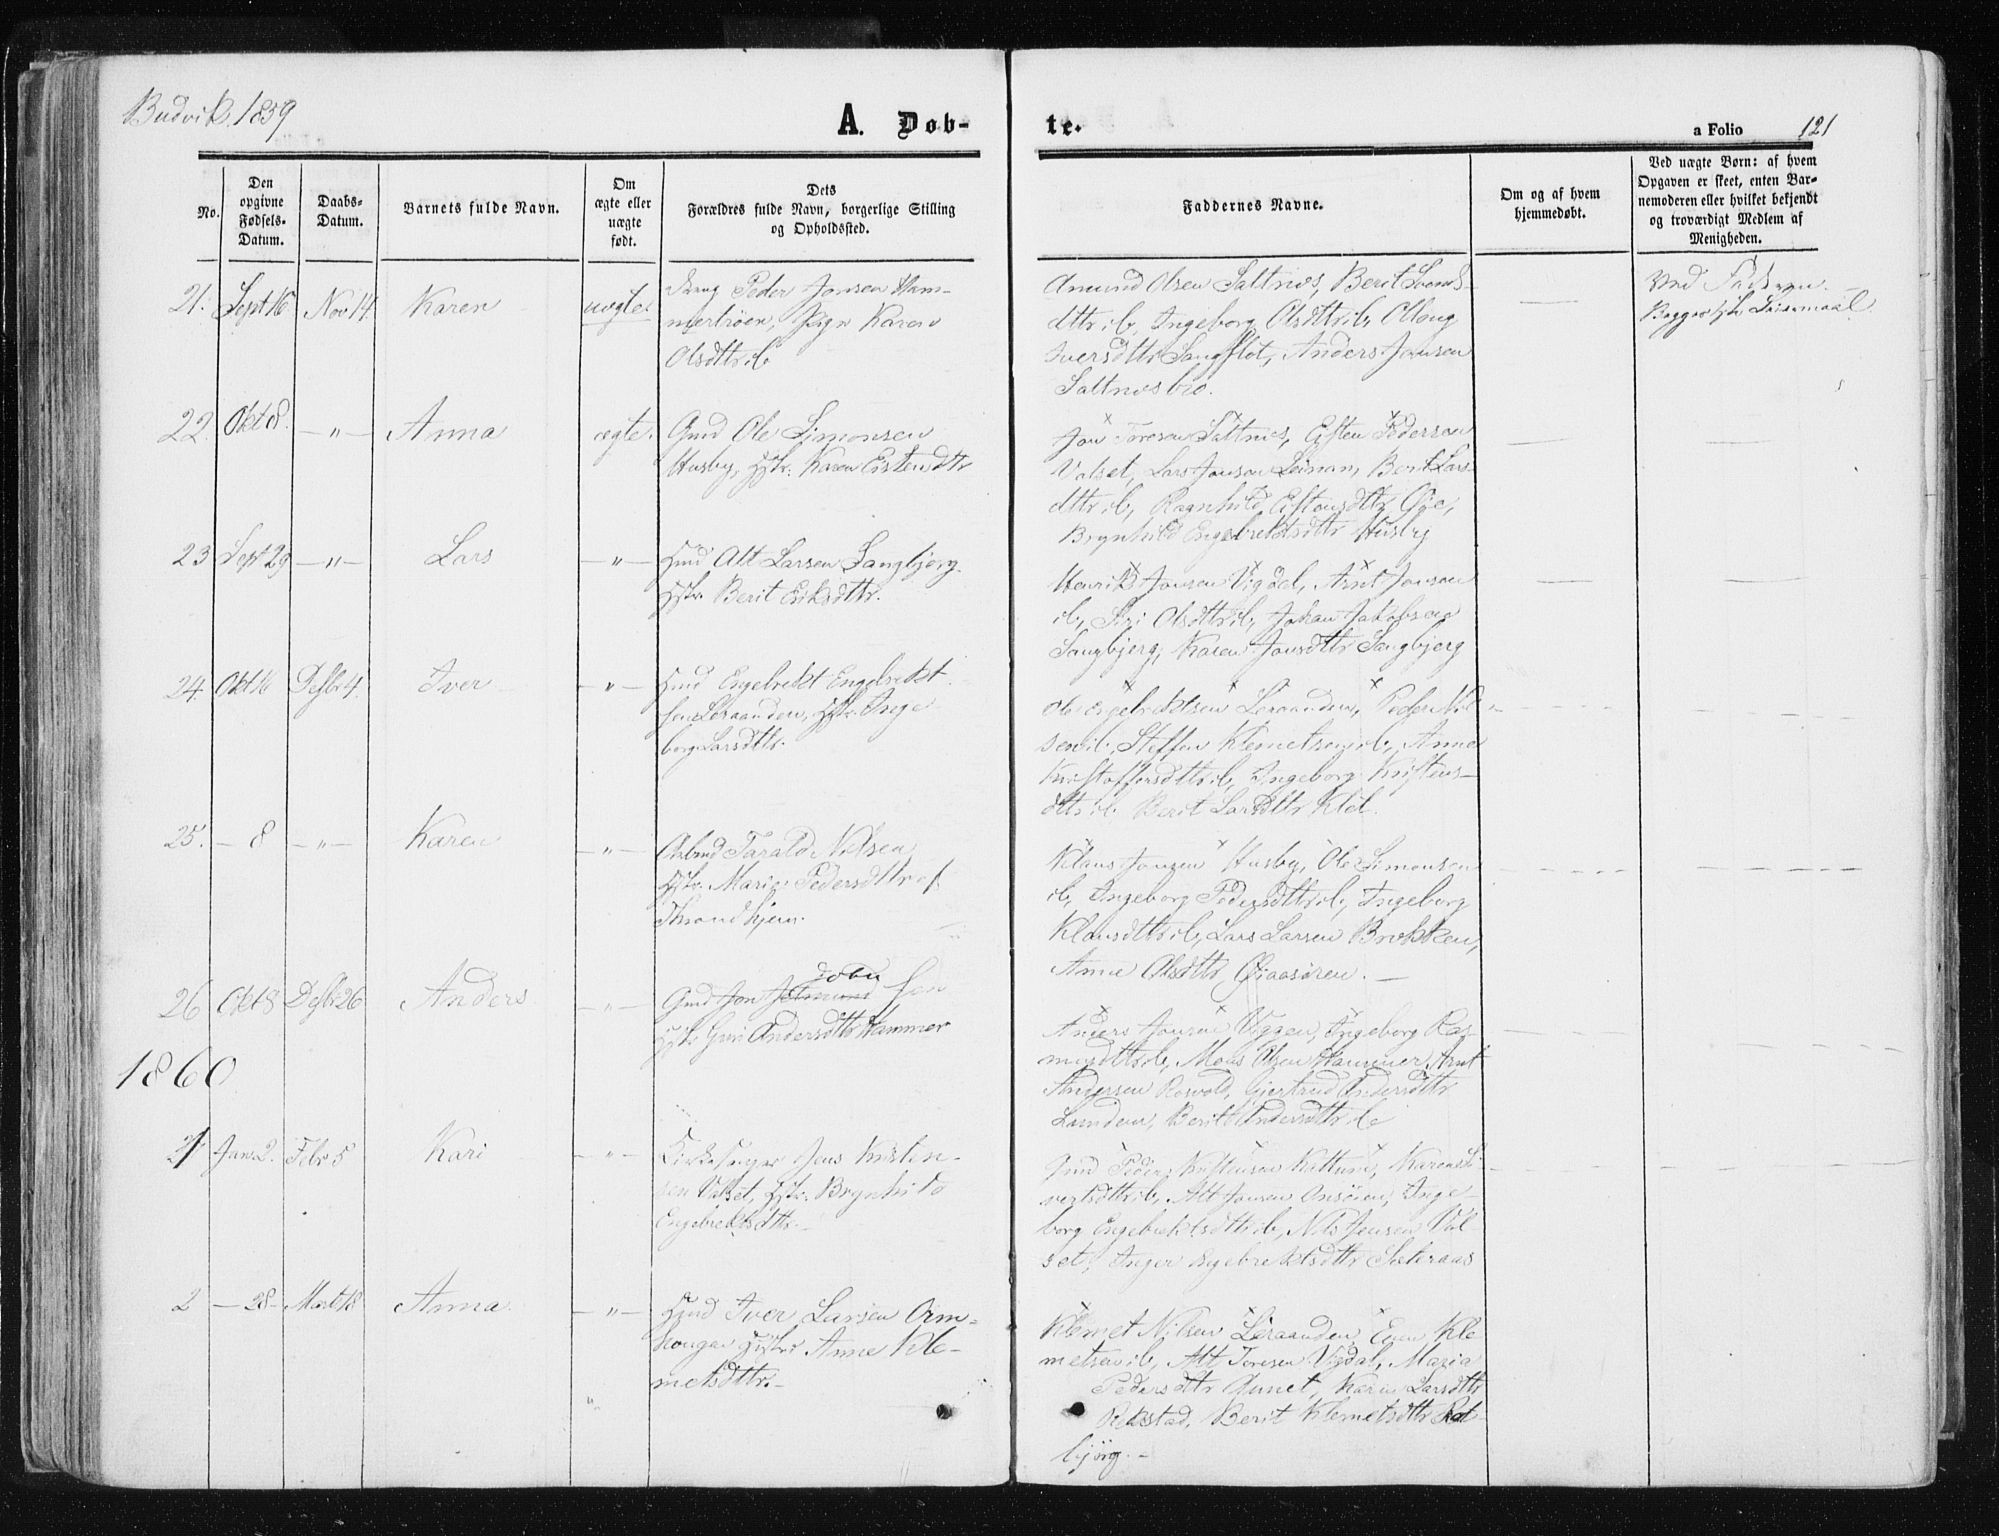 Budvik. 1859
A. Døb-
te.
a Folio 121
No.
Den opgivne Fødsels-Datum.
Daabs-Datum.
Barnets fulde Navn.
Om ægte eller uægte født.
Dets Forældres fulde Navn, borgerlige Stilling og Opholdssted.
Faddernes Navne.
Om og af hvem hjemmedøbt.
Ved uægte Børn: af hvem Opgaven er skeet, enten Barnemoderen eller hvilket bekjendt og troværdigt Medlem af Menigheden.
21. Sept 16 Nov 14. Karen uægte.
Peder Jonsen Ham-
mertrøen, Pige Karen
Olsdttr ib
Amund Olsen Saltnes, Berit Svends-
dttr ib, Ingeborg Olsdttr ib, Oloug
Iversdttr Langflot, Anders Jonsen
Saltnes
Ved Fadderne.
Begges 1ste Leiermaal.
22. Okt 8. —"— Anna ægte.
Gmd Ole Simonsen
Husby, Hstr. Karen Eistensdttr
Jon Toresen Saltnes, Esten Pedersen
Valset, Lars Jonsen Leinan, Berit Lars-
dttr ib, Ragnhild Estensdttr Øie,
Brynhild Engebrektsdttr Husby
23 Sept 29 —"— Lars —"—
Hmd Alt Larsen Langbjørg.
Hstr. Berit Eriksdttr.
Henrik Jonsen Vigdal, Arnt Jonsen
ib, Siri Olsdttr ib, Johan Jakobsen
Langbjerg, Karen Jonsdttr Langbjerg
24. Okt 16 Desbr 4. Iver —"—
Hmd Engebrekt Engebrekt-
sen Leraanden, Hstr. Inge-
borg Larsdttr.
Ole Engebrektsen Leraanden, Peder Nil-
sen ib, Steffen Klemetsen ib, Anne
Kristoffersdttr ib, Ingeborg Kristens-
dttr ib Berit Larsdttr Klet.
25. — 8 —"— Karen —"—
Arbmd Tarald Nilsen
Hstr. Marie Pedersdttr af
Throndhjem.
Klaus Jonsen Husby, Ole Simonsen
ib, Ingeborg Pedersdttr ib, Ingeborg
Klausdttr ib, Lars Larsen Brekken,
Anne Olsdttr Øiaasøren. —
26 Okt 8 Desbr 26 Anders —"—
Gmd Jon sen
Hstr Guri Andersdttr Hammer
Anders Jonsen Viggen, Ingeborg Ras-
musdttr ib, Mons Olsen Hammer, Arnt
Andersen Rosvold, Gjertrud Andersdttr
Berit Andersdttr ib
1860
1 Janr 2. Febr 5 Kari —"—
Kirkesanger Jens Kristen-
sen Valset, Hstr. Brynhild
Engebrektsdttr.—
Gmd Peder Kristensen Kattum, Karen Si-
vertsdttr ib, Alt Jonsen Onsøien, Inge-
borg Engebrektsdttr ib, Nils Jensen Val-
set, Inger Engebrektsdttr Sæteraas
2 — 28 — Mart 18 Anna —"—
Hmd Iver Larsen Orm-
hougen Hstr. Anne Kle-
metsdttr.—
Klemet Nilsen Leraanden, Even Kle
metsen ib, Alt Toresen Vigdal, Maria
Pedersdttr Gunnet, Karen Larsdttr
Rekstad, Berit Klemetsdttr Rot-
bjørg. —